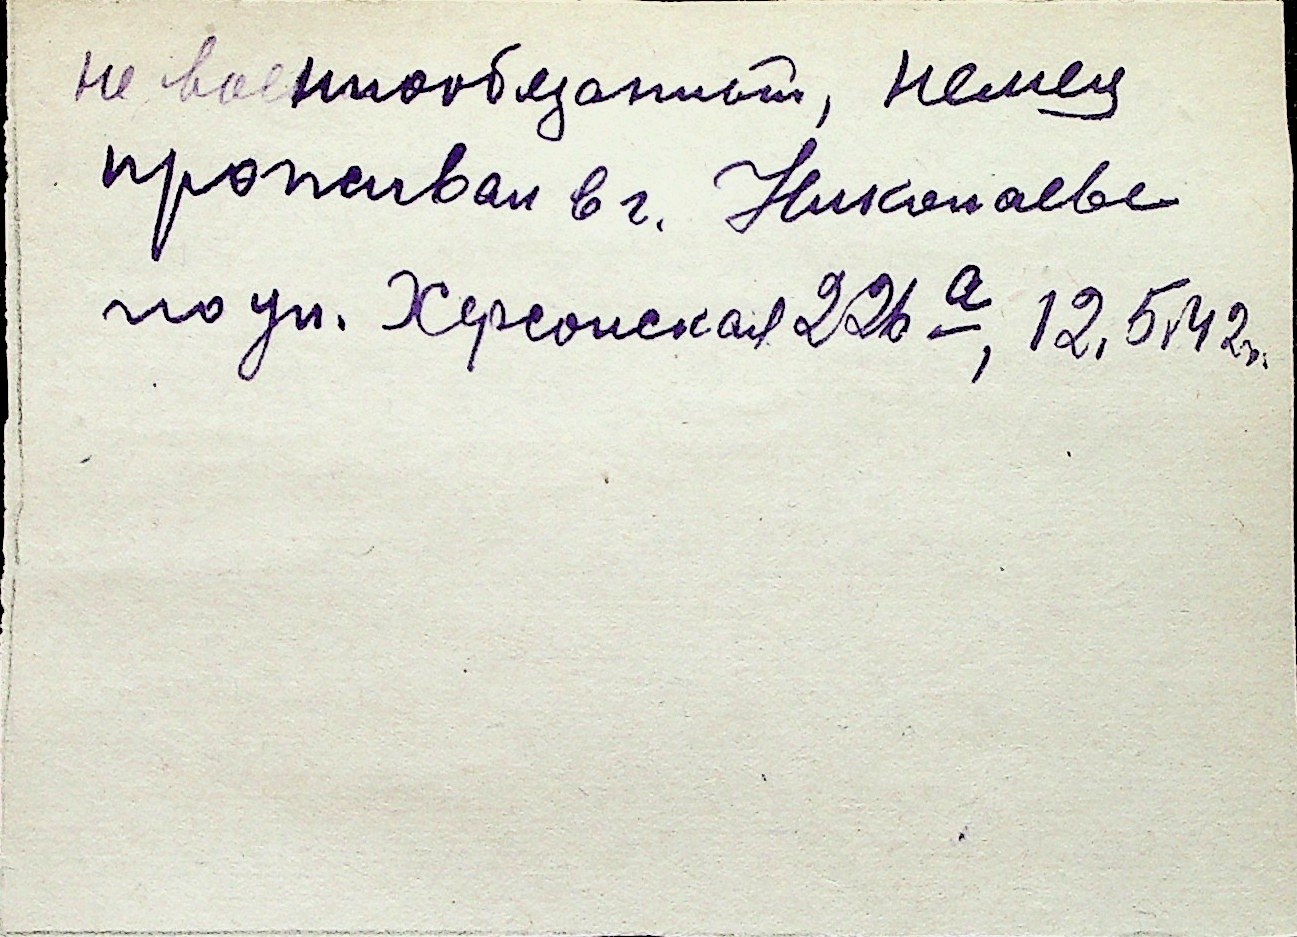 не военнообязанный, немец
проживал в г. Николаеве
по ул. Херсонская 226 а, 12.5.42 г.